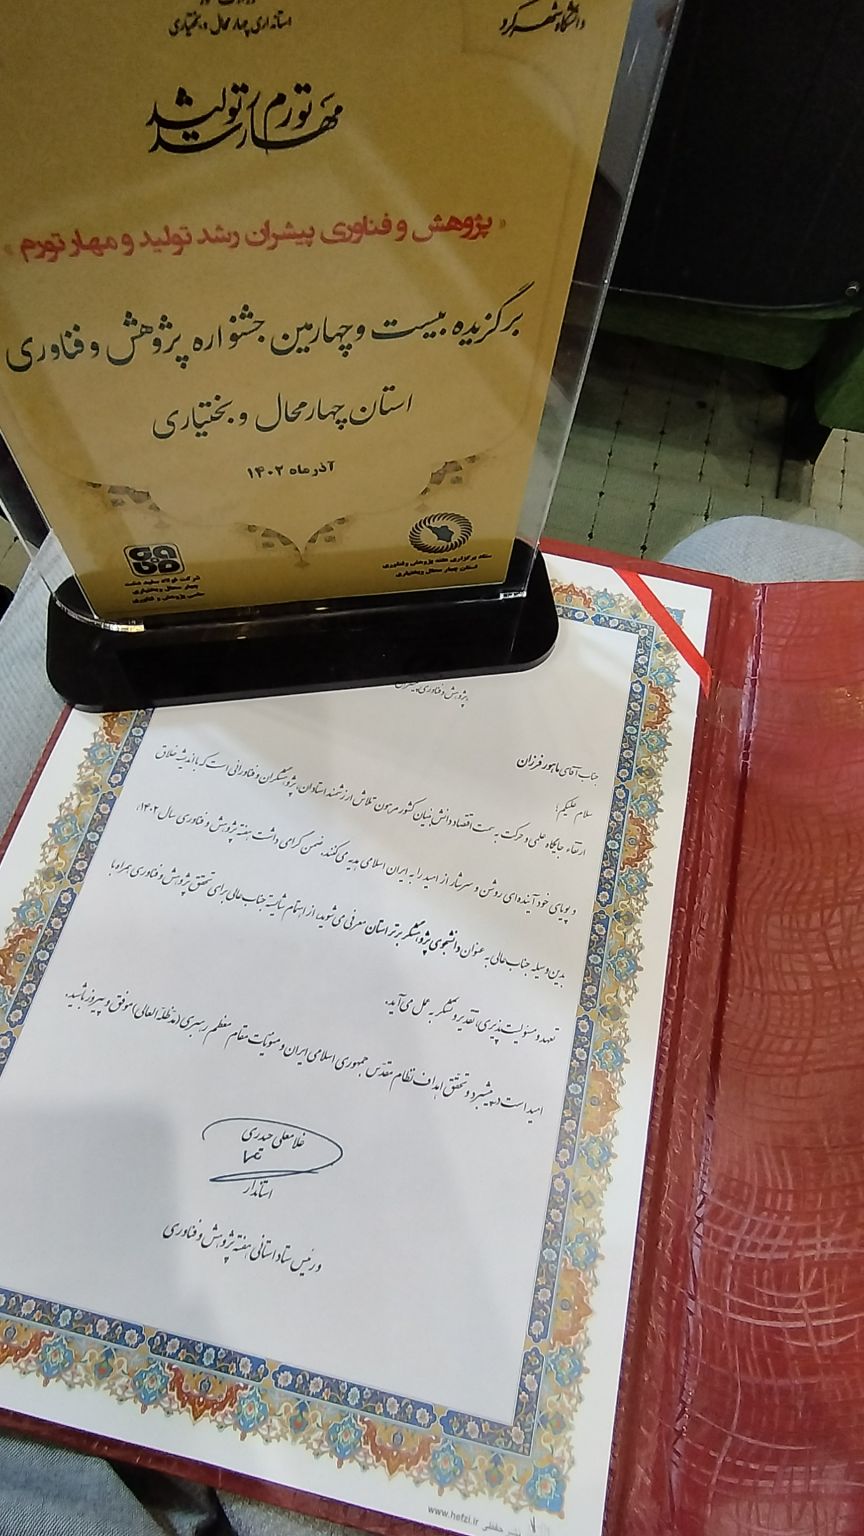 استانداری چهارمحال و بختیاری
دانشگاه شهرکرد
مهار تورم رشد تولید
« پژوهش و فناوری پیشران رشد تولید و مهار تورم »
برگزیده بیست و چهارمین جشنواره پژوهش و فناوری
استان چهارمحال و بختیاری
آذر ماه ۱۴۰۲
ستاد برگزاری هفته پژوهش و فناوری
استان چهار محال وبختیاری
شرکت فولاد سفید دشت
چهار محال وبختیاری
حامی پژوهش و فناوری
جناب آقای ماهور فرزان
سلام علیکم؛
ارتقاء جایگاه علمی و حرکت به سمت اقتصاد دانش بنیان کشور مرهون تلاش ارزشمند استادان، پژوهشگران و فناورانی است که با اندیشه خلاق
و پویای خود آینده ای روشن و سرشار از امید را به ایران اسلامی هدیه می کنند. ضمن گرامی داشت هفته پژوهش و فناوری سال ۱۴۰۲،
بدین وسیله جناب عالی به عنوان دانشجوی پژوهشگر برتر استان معرفی می شوید؛ از اهتمام شایسته جناب عالی برای تحقق پژوهش و فناوری همراه با
تعهد و مسئولیت پذیری، تقدیر و تشکر به عمل می آید.
امید است در پیشبرد و تحقق اهداف نظام مقدس جمهوری اسلامی ایران و منویات مقام معظم رهبری (مدظله العالی) موفق و پیروز باشید.
غلامعلی حیدری
استاندار
و رئیس ستاد استانی هفته پژوهش و فناوری
www.hefzi.ir